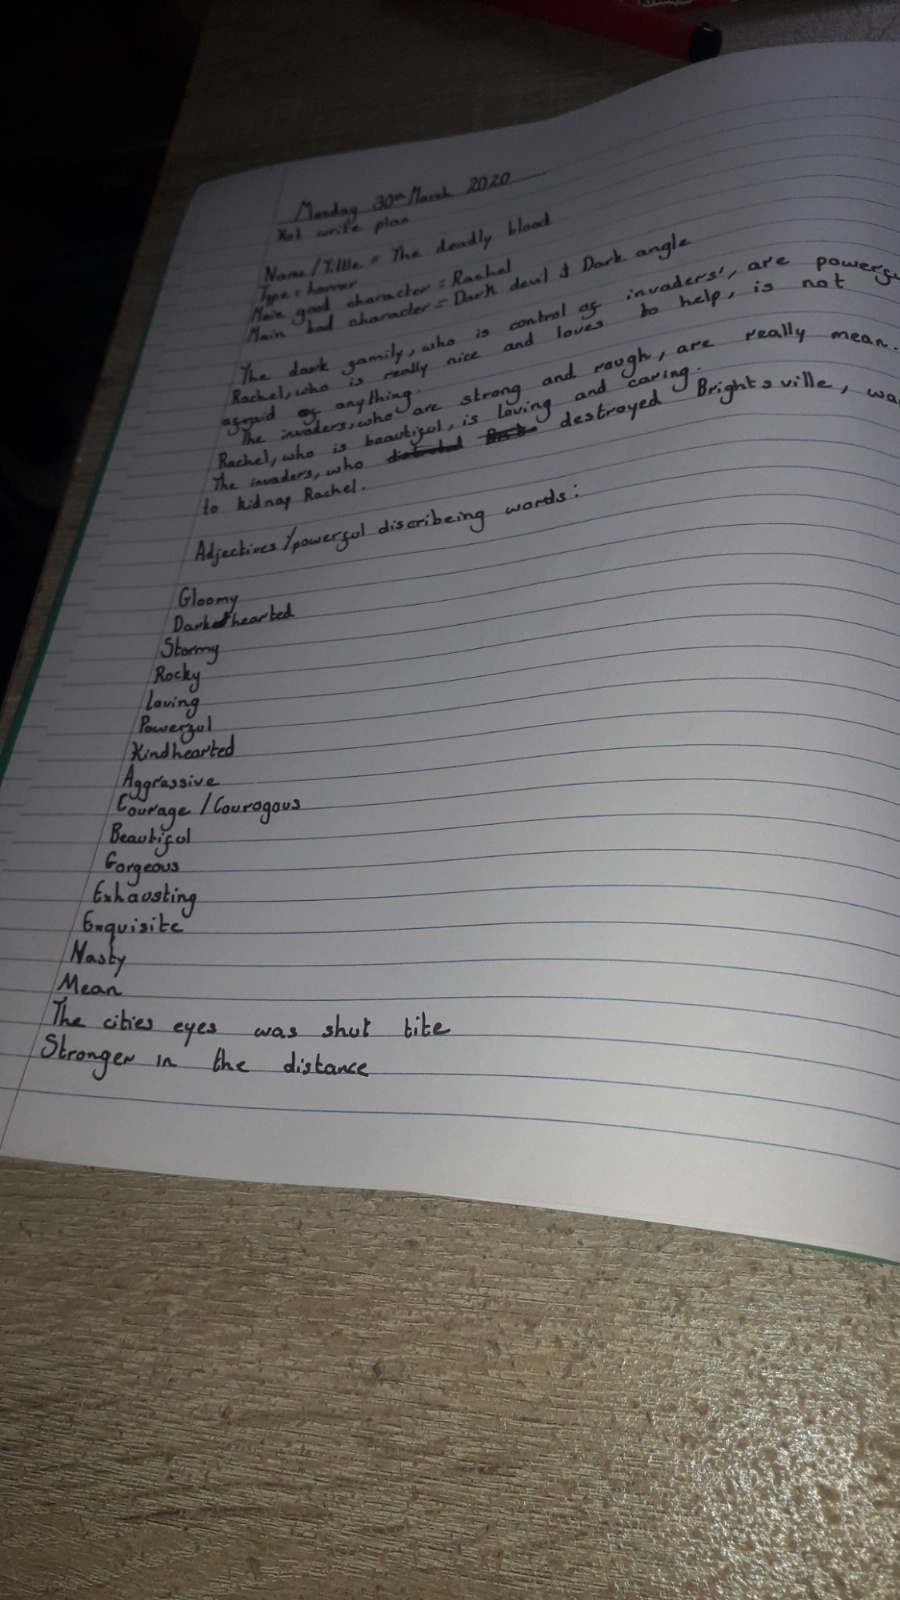 Monday 30th March 2020
Hot write plan
Name/Tittle = The deadly blood
Type = horror
Main good character = Rachel
Main bad character = Dark devil & Dark angle
The dark family, who is control of invaders', are powerfu
Rachel, who is really nice and loves to help, is not
afraid of anything.
The invaders, who are strong and rough, are really mean.
Rachel, who is beautiful, is loving and caring.
The invaders, who destroyed Brightsville, wa
to kidnap Rachel.
Adjectives/powerful discribeing words:
Gloomy
Darkhearted
Stormy
Rocky
Loving
Powerful
Kindhearted
Aggressive
Courage / Courogous
Beautiful
Gorgeous
Exhausting
Exquisite
Nasty
Mean
The cities eyes was shut tite
Stronger in the distance